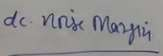 dc. Noise Margin